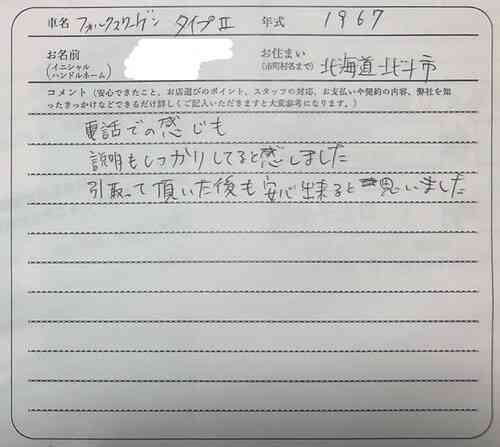 車名 フォルクスワーゲン タイプⅡ 年式 1967
お名前 お住まい
(イニシャル (市町村名まで) 北海道北斗市
ハンドルホーム)
コメント (安心できたこと、お店選びのポイント、スタッフの対応、お支払いや契約の内容、弊社を知
ったきっかけなどできるだけ詳しくご記入いただきますと大変参考になります。)
電話での感じも
説明もしっかりしてると感しました
引取って頂いた後も安心出来ると思いました